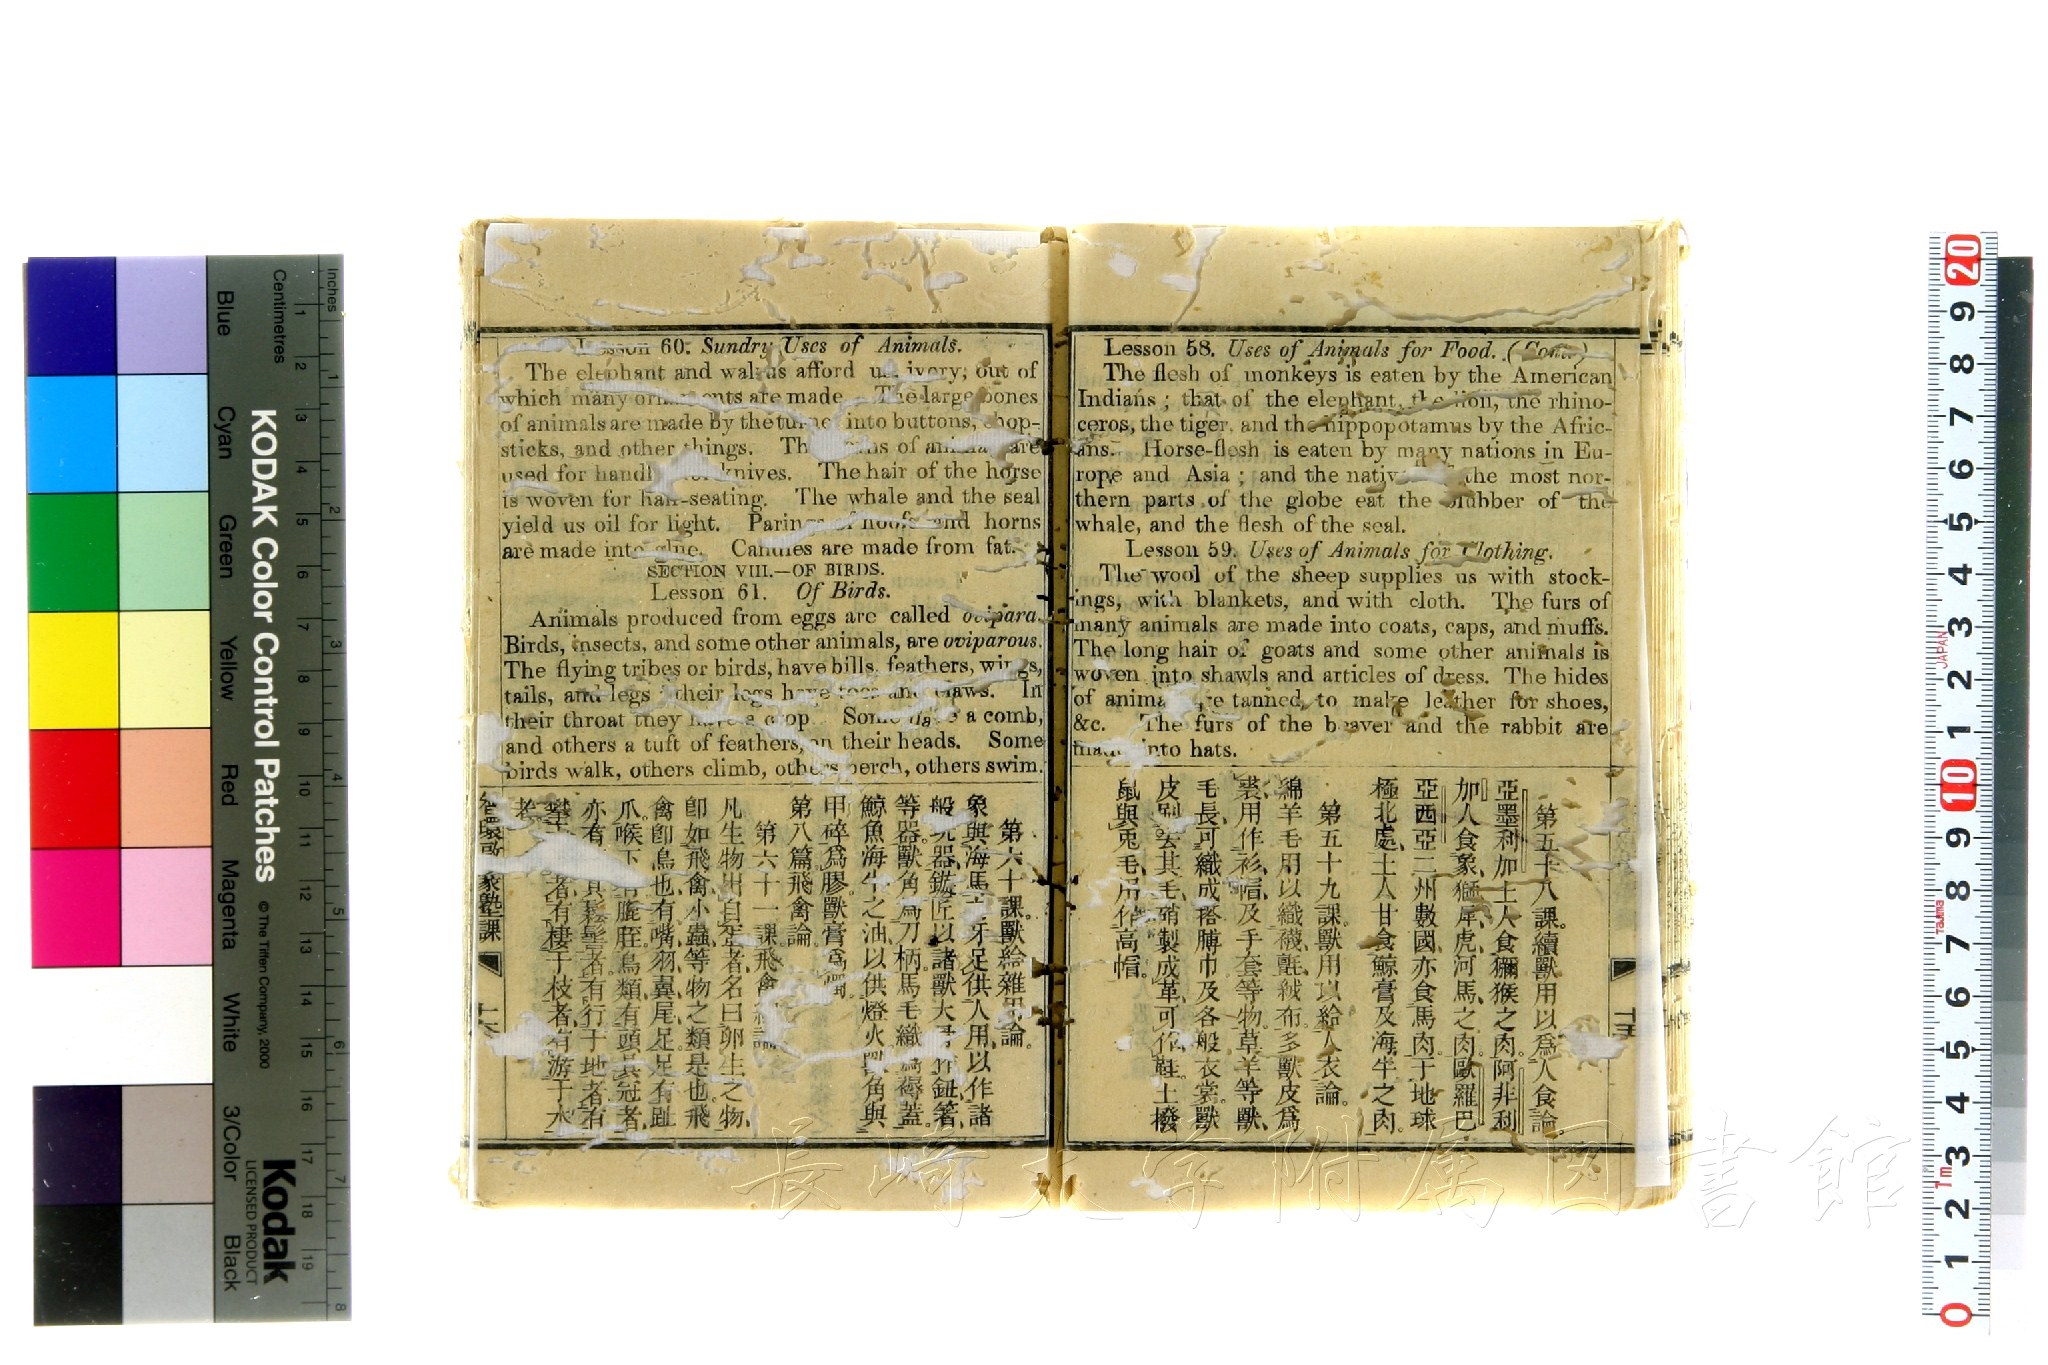 Lesson 58. Uses of Animals for Food. (Cont.)
The flesh of monkeys is eaten by the American
Indians; that of the elephant, the lion, the rhino-
ceros, the tiger, and the hippopotamus by the Afric-
ans. Horse-flesh is eaten by many nations in Eu-
rope and Asia; and the nativ the most nor-
thern parts of the globe eat the blubber of the
whale, and the flesh of the seal.
Lesson 59. Uses of Animals for Clothing.
The wool of the sheep supplies us with stock-
ings, with blankets, and with cloth. The furs of
many animals are made into coats, caps, and muffs.
The long hair of goats and some other animals is
woven into shawls and articles of dress. The hides
of anima re tanned, to make leather for shoes,
&c. The furs of the beaver and the rabbit are
made into hats.
第五十八課。續獸用以為人食論。
亞墨利加土人食獼猴之肉。阿非利
加人食象、獅、犀、虎、河馬、之肉。歐羅巴
亞西亞二州數國、亦食馬肉。于地球
極北處、土人甘食鯨膏及海牛之肉。
第五十九課。獸用以給人衣論。
綿羊毛用以織襪、氈、絨布。多獸皮爲
裘、用作衫、帽、及手套等物。草羊等獸、
毛長、可織成搭膊巾及各般衣裳。獸
皮刮去其毛、硝製成革、可作鞋。土撥
鼠與兎毛、用作高帽。
Lesson 60. Sundry Uses of Animals.
The elephant and walrus afford us ivory, out of
which many ornaments are made. The large bones
of animals are made by the turner into buttons, chop-
sticks, and other things. The of animals are
used for handl knives. The hair of the horse
is woven for hair-seating. The whale and the seal
yield us oil for light. Parings of hoofs and horns
are made into glue. Candles are made from fat.
SECTION VIII.—OF BIRDS.
Lesson 61. Of Birds.
Animals produced from eggs are called ovipara.
Birds, insects, and some other animals, are oviparous.
The flying tribes or birds, have bills, feathers, wings,
tails, and legs; their legs have toes and claws. In
their throat they have a crop. Some have a comb,
and others a tuft of feathers, on their heads. Some
birds walk, others climb, others perch, others swim.
第六十課。獸給雜用論。
象與海馬之牙、足供人用、以作諸
般玩器。鏇匠以諸獸大骨作鈕、箸、
等器。獸角爲刀柄。馬毛織爲褥蓋。
鯨魚海牛之油、以供燈火。獸角與
甲碎爲膠。獸膏爲燭。
第八篇飛禽論。
第六十一課。飛禽總論。
凡生物出自蛋者、名曰卵生之物、
卽如飛禽小蟲等物之類是也。飛
禽卽鳥也。有嘴、羽、翼、尾、足、足有趾
爪。喉下有膆胵。鳥類有頭具冠者、
亦有具鬆髻者。有行于地者、有
攀 者、有棲于枝者、有游于水
者。
塾課 十六
長崎大学附属図書館
KODAK Color Control Patches
© The Tiffen Company, 2000
Kodak
LICENSED PRODUCT
Inches
Centimetres
Blue
Cyan
Green
Yellow
Red
Magenta
White
3/Color
Black
1 2 3 4 5 6 7 8 9 10 11 12 13 14 15 16 17 18 19
1 2 3 4 5 6 7 8
20 9 8 7 6 5 4 3 2 1 10 9 8 7 6 5 4 3 2 1 0
JAPAN
Tajima
1m